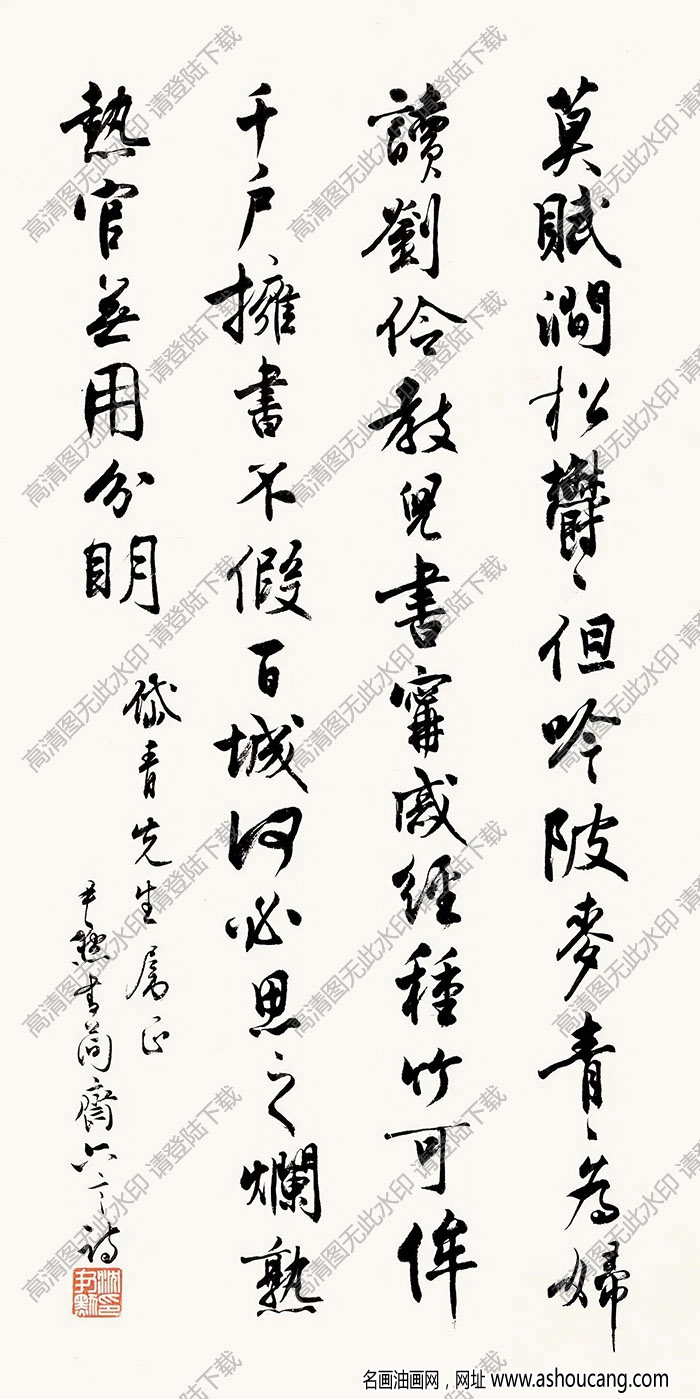 莫賦澗松鬱〻但吟陂麥青〻為婦
讀劉伶教兒書甯戚經種竹可侔
千戶擁書不假百城何必思之爛熟
熱官無用分明
岱青先生屬正
尹默書簡齋六言詩
沈尹默印
高清图无此水印 请登陆下载
名画油画网，网址 www.ashoucang.com